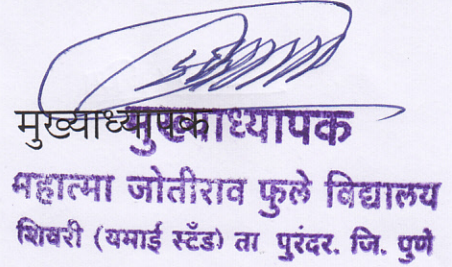 मुख्याध्यापक मुख्याध्यापक
महात्मा जोतीराव फुले विद्यालय
शिवरी (यमाई स्टँड) ता पुरंदर. जि. पुणे